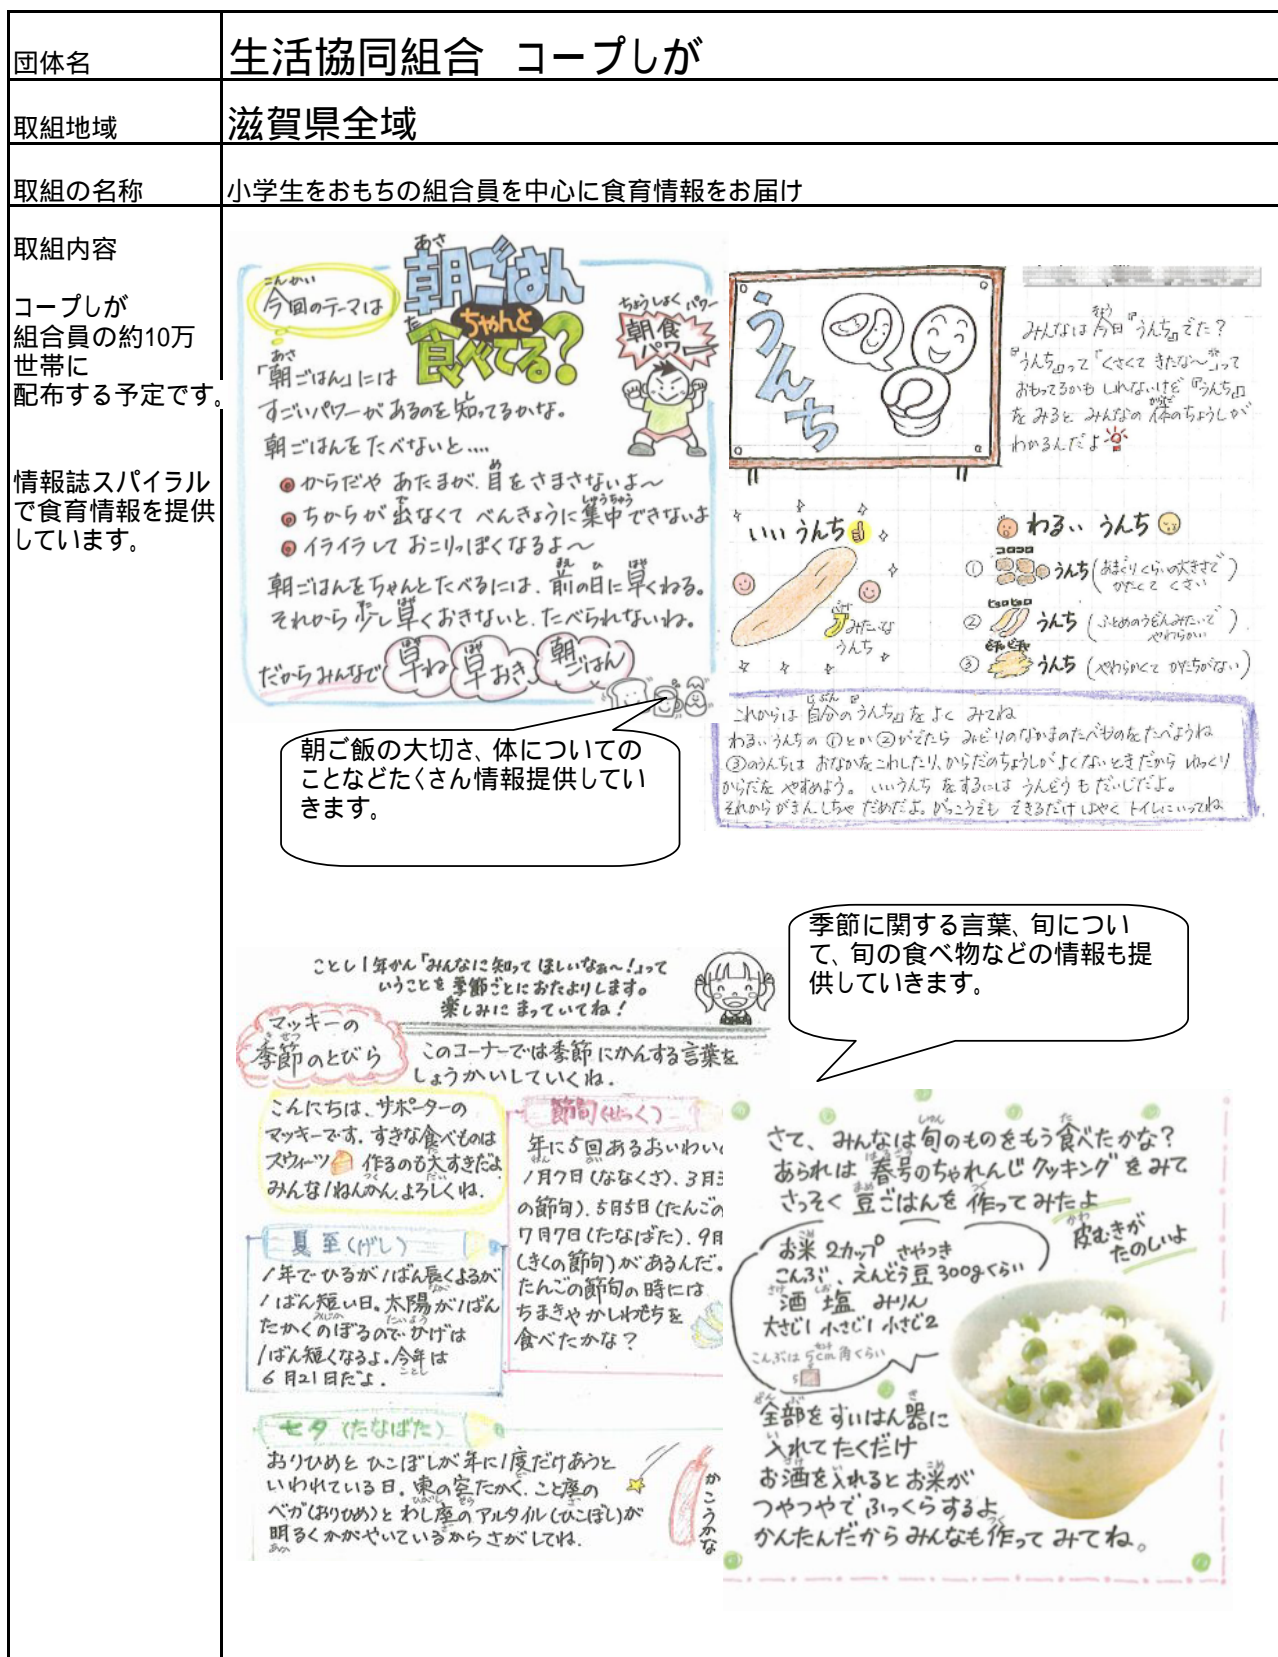 団体名
生活協同組合 コープしが
取組地域
滋賀県全域
取組の名称
小学生をおもちの組合員を中心に食育情報をお届け
取組内容
コープしが
組合員の約10万
世帯に
配布する予定です。
情報誌スパイラル
で食育情報を提供
しています。
こんかい
今回のテーマは
あさ
朝ごはん
ちゃんと
た
食べてる?
ちょうしょく パワー
朝食
パワー
あさ
「朝ごはん」には
すごいパワーがあるのを知ってるかな。
朝ごはんをたべないと....
からだや あたまが、目をさまさないよ〜
ちからが出なくて べんきょうに集中できないよ
イライラして おこりっぽくなるよ〜
朝ごはんをちゃんとたべるには、前の日に早くねる。
それから少し早くおきないと、たべられないね。
だからみんなで 早ね 早おき 朝ごはん
朝ご飯の大切さ、体についての
ことなどたくさん情報提供してい
きます。
うんち
みんなは今日『うんち』でた?
『うんち』って『くさくて きたな〜い』って
おもってるかも しれないけど『うんち』
を みると みんなの 体のちょうしが
わかるんだよ
いい うんち
バナナ
みたいな
うんち
わるい うんち
① コロコロ うんち(あまぐりくらいの大きさで かたくて くさい)
② ヒョロヒョロ うんち(ふとめのうどんみたいで やわらかい)
③ ビチャビチャ うんち(やわらかくて かたちがない)
これからは 自分の『うんち』を よく みてね
わるいうんちの ①とか②がでたら みどりのなかまのたべものを たべようね
③のうんちは おなかをこわしたり、からだのちょうしがよくないときだから ゆっくり
からだを やすめよう。 いいうんち をするには うんどうも だいじだよ。
それから がまんしちゃ だめだよ。がっこうでも できるだけ はやく トイレにいってね
季節に関する言葉、旬につい
て、旬の食べ物などの情報も提
供していきます。
ことし1年かん「みんなに知って ほしいなぁ〜!」って
いうことを 季節ごとにおたよりします。
楽しみに まっていてね!
マッキーの
きせつ
季節のとびら
このコーナーでは季節にかんする言葉を
しょうかいしていくね.
こんにちは、サポーターの
マッキーです。すきな食べものは
スウィーツ 作るのも大すきだよ
みんな1ねんかん、よろしくね.
節句(せっく)
年に5回あるおいわい
1月7日(ななくさ)、3月
の節句)、5月5日(たんごの
7月7日(たなばた)、9月
(きくの節句)があるんだ。
たんごの節句の時には
ちまきやかしわもちを
食べたかな?
夏至(げし)
1年でひるが1ばん長くよるが
1ばん短い日。太陽が1ばん
たかくのぼるのでかげは
1ばん短くなるよ。今年は
6月21日だよ.
七夕(たなばた)
おりひめと ひこぼしが年に1度だけあうと
いわれている日。東の空たかく、こと座の
ベガ(おりひめ)と わし座の アルタイル(ひこぼし)が
明るくかがやいているからさがしてね.
かこうかな
さて、みんなは旬のものをもう食べたかな?
あられは 春号のちゃれんじクッキングをみて
さっそく 豆ごはんを 作ってみたよ
皮むきが
たのしいよ
お米 2カップ さやつき
こんぶ、えんどう豆 300gくらい
酒 塩 みりん
大さじ1 小さじ1 小さじ2
こんぶは 5cm 角くらい
全部を すいはん器に
入れてたくだけ
お酒を入れるとお米が
つやつやで ふっくらするよ
かんたんだから みんなも作って みてね。